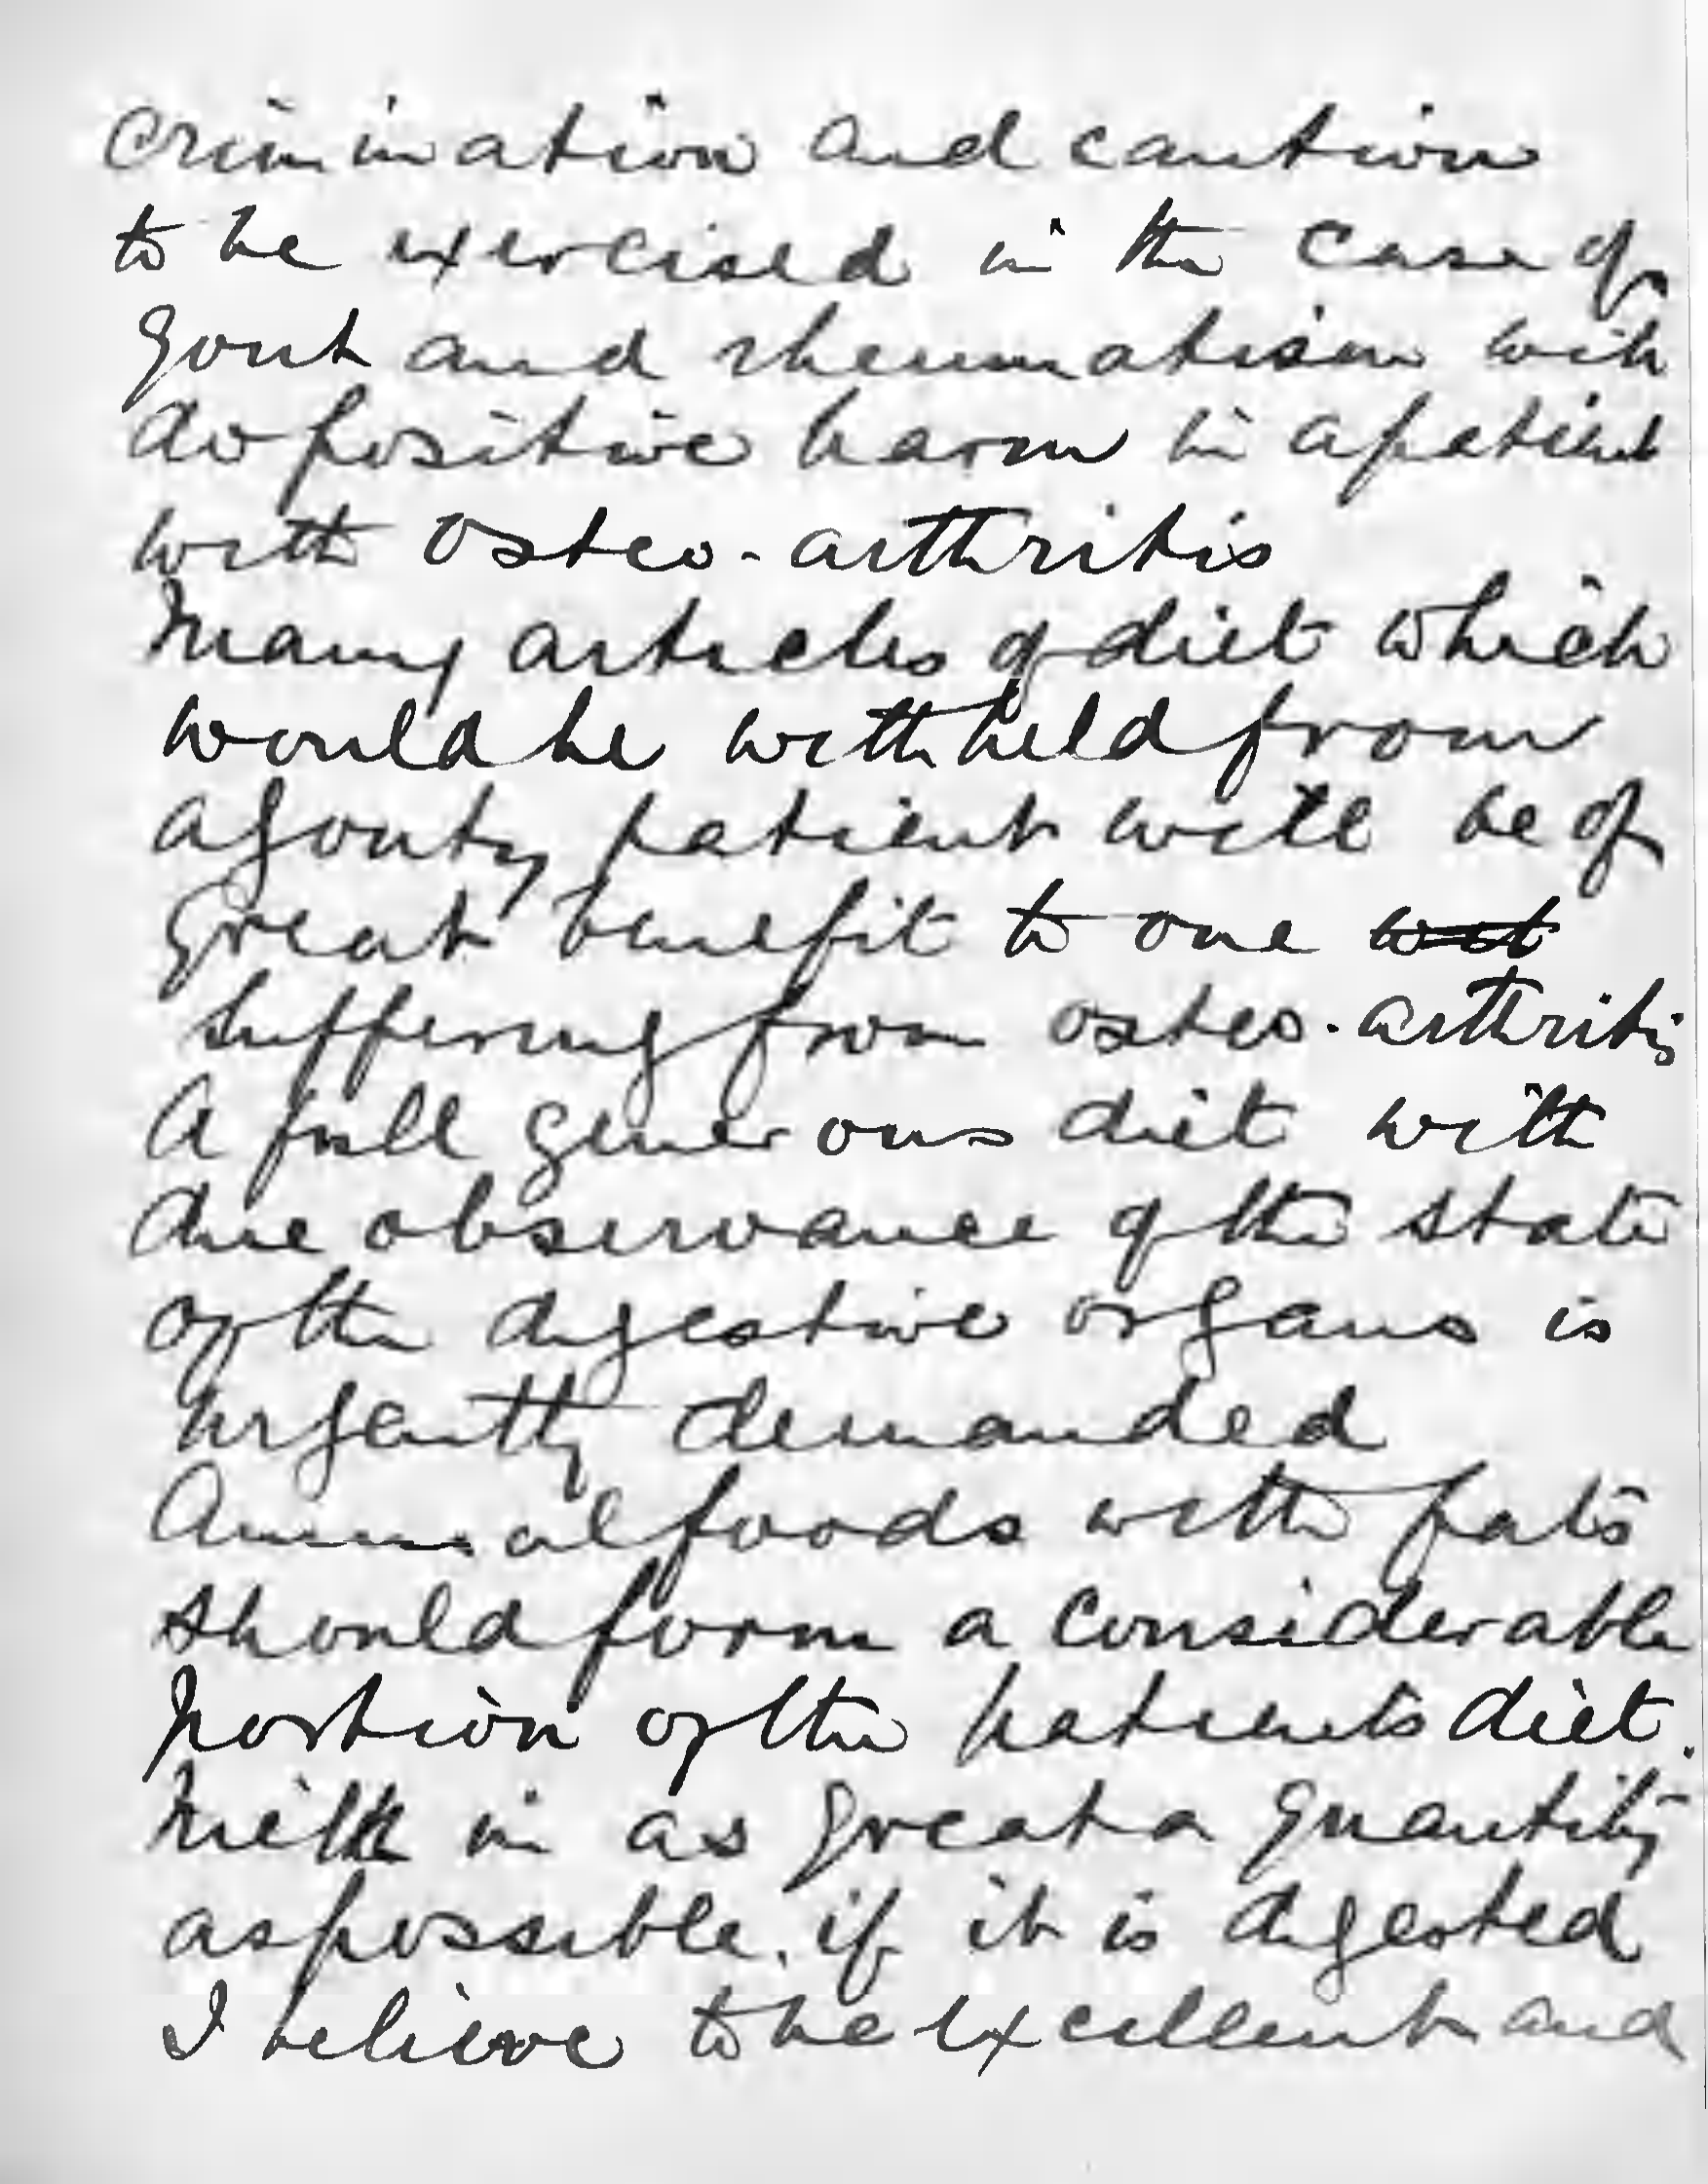 crimination and caution
to be exercised in the case of
gout and rheumatism will
do positive harm in a patient
with osteo-arthritis
Many articles of diet which
would be withheld from
a gouty patient will be of
great benefit to one wit
suffering from osteo-arthritis
A full generous diet with
due observance of the state
of the digestive organs is
urgently demanded
Animal foods with fats
should form a considerable
portion of the patients diet.
Milk in as great a quantity
as possible, if it is digested
I believe to be excellent and